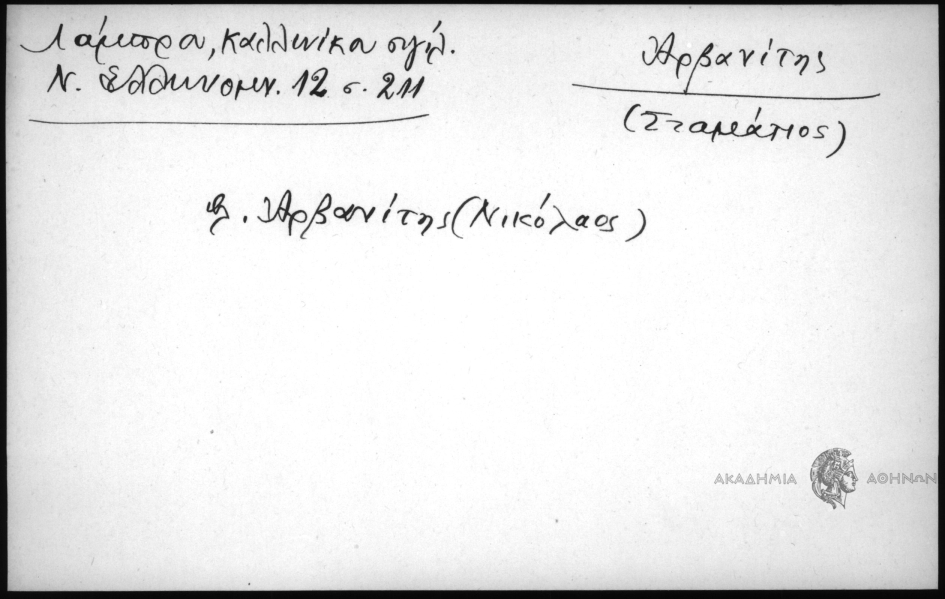 Λάμπρου, Καλλινίκου σιγίλ.
Ν. Ἑλληνομν. 12 σ. 211
Ἀρβανίτης
(Σταμάτιος)
β. Ἀρβανίτης (Νικόλαος)
ΑΚΑΔΗΜΙΑ ΑΘΗΝΩΝ